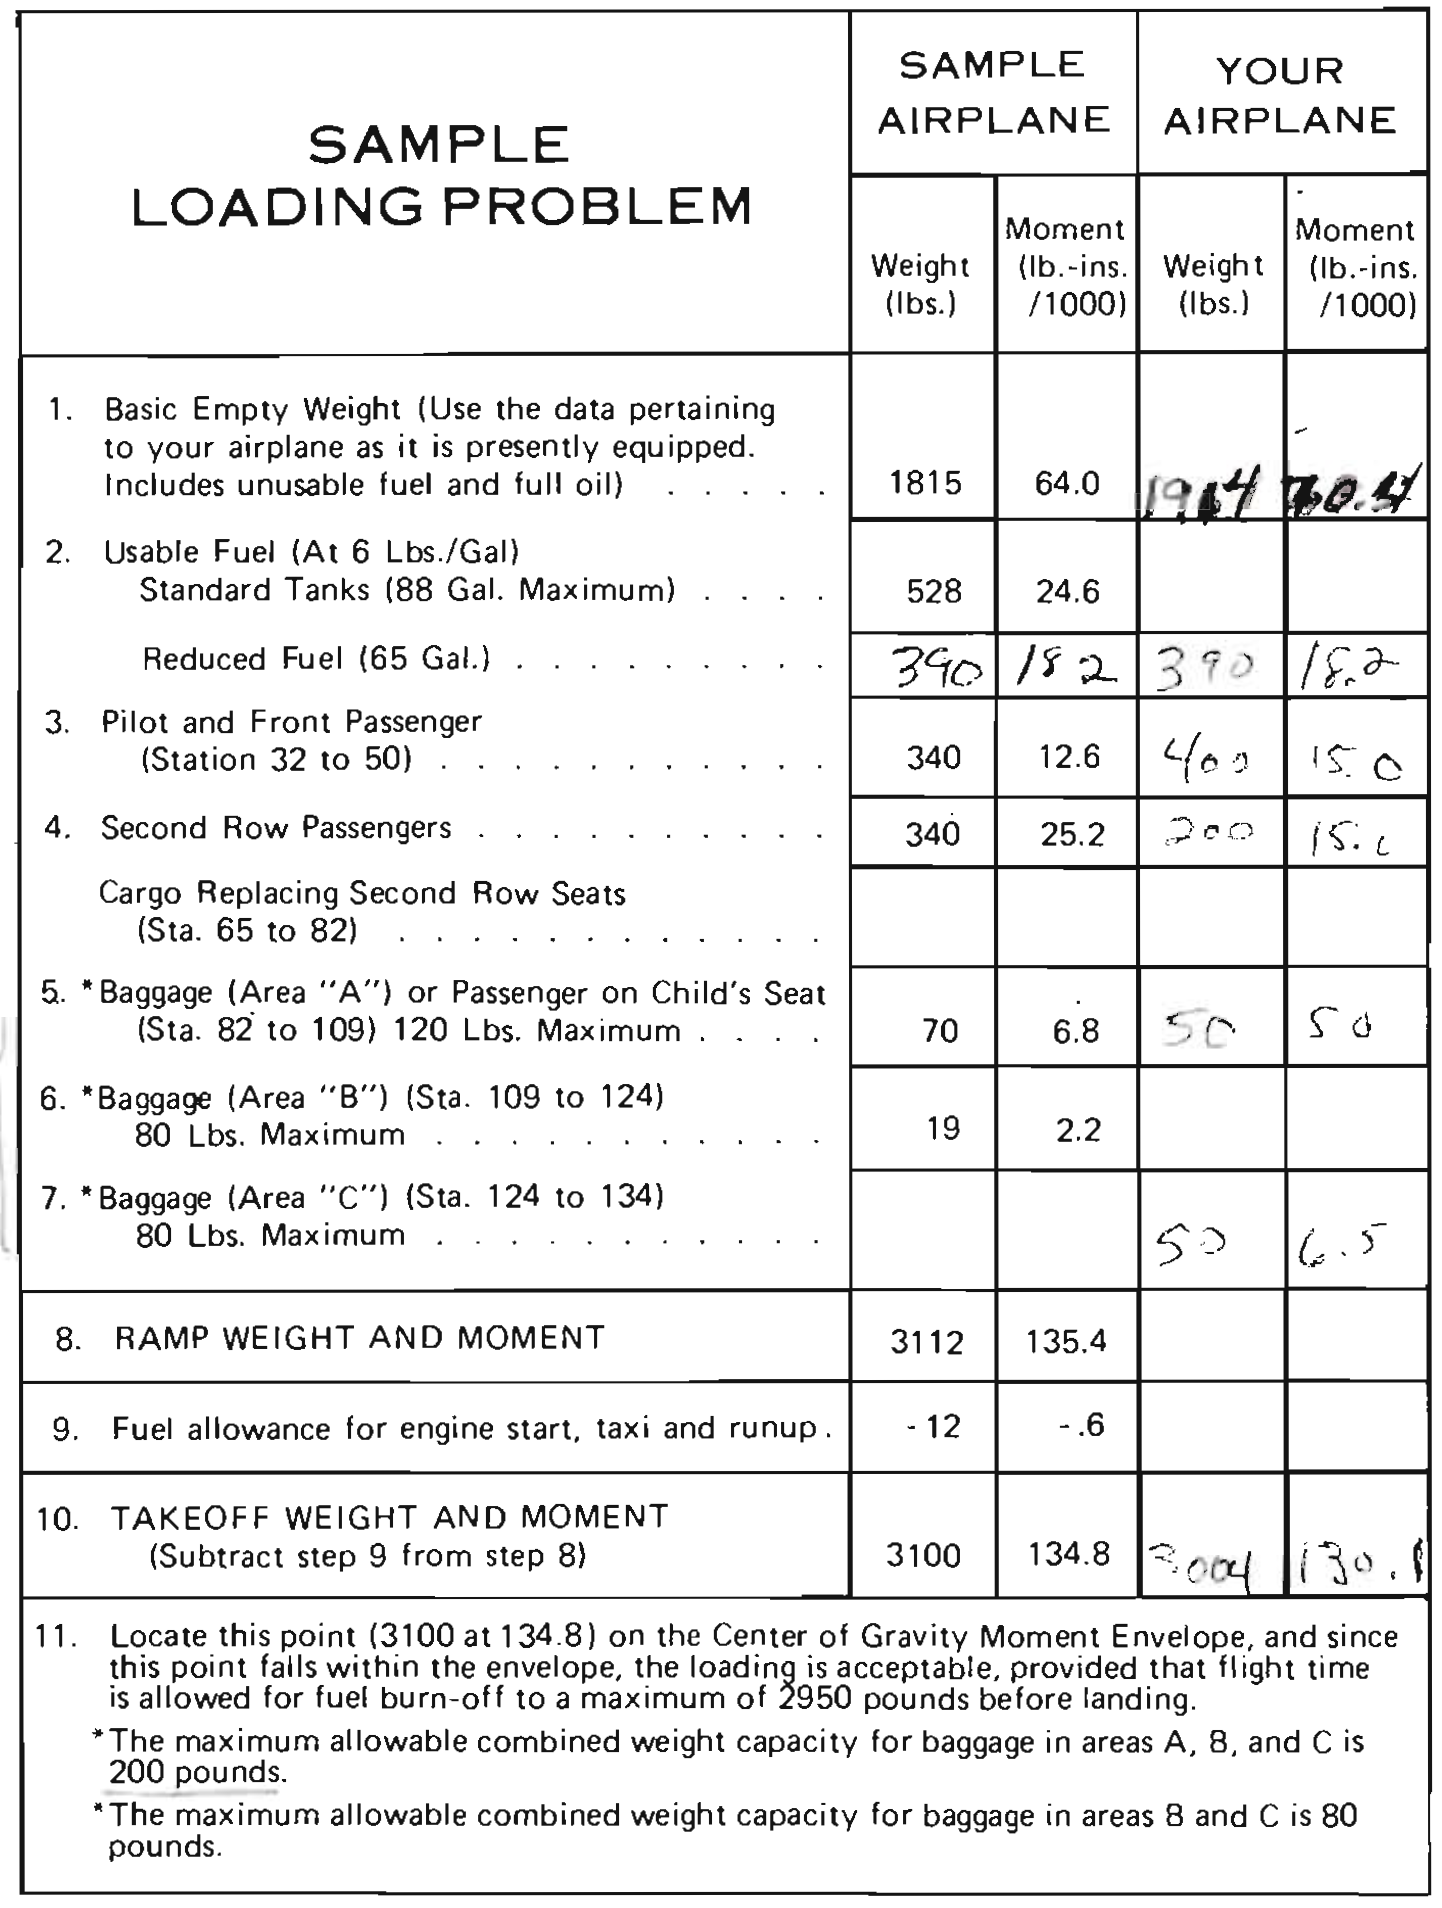 SAMPLE
LOADING PROBLEM
SAMPLE
AIRPLANE
YOUR
AIRPLANE
Weight
(lbs.)
Moment
(lb.-ins.
/1000)
Weight
(lbs.)
Moment
(lb.-ins.
/1000)
1. Basic Empty Weight (Use the data pertaining
to your airplane as it is presently equipped.
Includes unusable fuel and full oil) . . . . . 1815 64.0 1914 70.4
2. Usable Fuel (At 6 Lbs./Gal)
Standard Tanks (88 Gal. Maximum) . . . . 528 24.6
Reduced Fuel (65 Gal.) . . . . . . . . . 390 18 2 390 18.2
3. Pilot and Front Passenger
(Station 32 to 50) . . . . . . . . . . . 340 12.6 400 15.0
4. Second Row Passengers . . . . . . . . . . 340 25.2 200 15.
Cargo Replacing Second Row Seats
(Sta. 65 to 82) . . . . . . . . . . . .
5. *Baggage (Area "A") or Passenger on Child's Seat
(Sta. 82 to 109) 120 Lbs. Maximum . . . . 70 6.8 50 50
6. *Baggage (Area "B") (Sta. 109 to 124)
80 Lbs. Maximum . . . . . . . . . . . 19 2.2
7. *Baggage (Area "C") (Sta. 124 to 134)
80 Lbs. Maximum . . . . . . . . . . . 50 6.5
8. RAMP WEIGHT AND MOMENT 3112 135.4
9. Fuel allowance for engine start, taxi and runup . -12 -.6
10. TAKEOFF WEIGHT AND MOMENT
(Subtract step 9 from step 8) 3100 134.8 3004 130.1
11. Locate this point (3100 at 134.8) on the Center of Gravity Moment Envelope, and since
this point falls within the envelope, the loading is acceptable, provided that flight time
is allowed for fuel burn-off to a maximum of 2950 pounds before landing.
*The maximum allowable combined weight capacity for baggage in areas A, B, and C is
200 pounds.
*The maximum allowable combined weight capacity for baggage in areas B and C is 80
pounds.